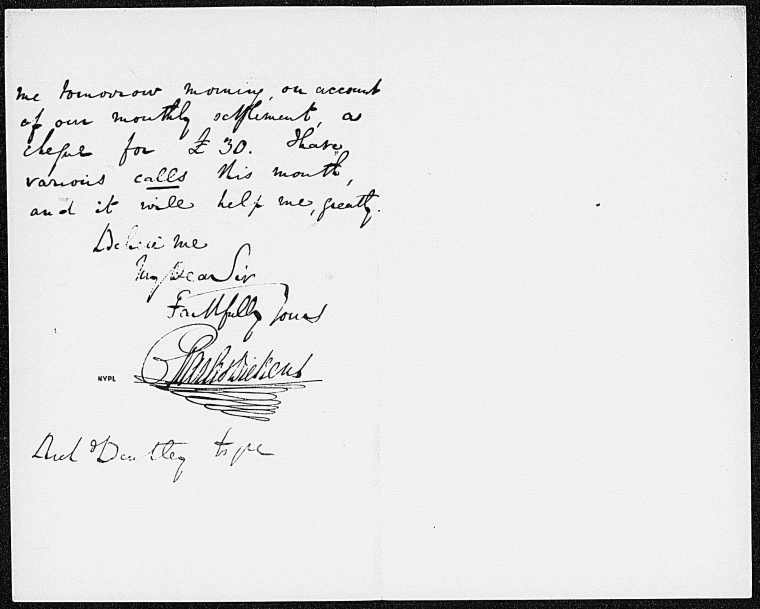 me tomorrow morning, on account
of our monthly settlement, a
cheque for £30. I have
various calls this month,
and it will help me, greatly.
Believe me
My Dear Sir
Faithfully Yours
Charles Dickens
NYPL
Richd Bentley Esqre